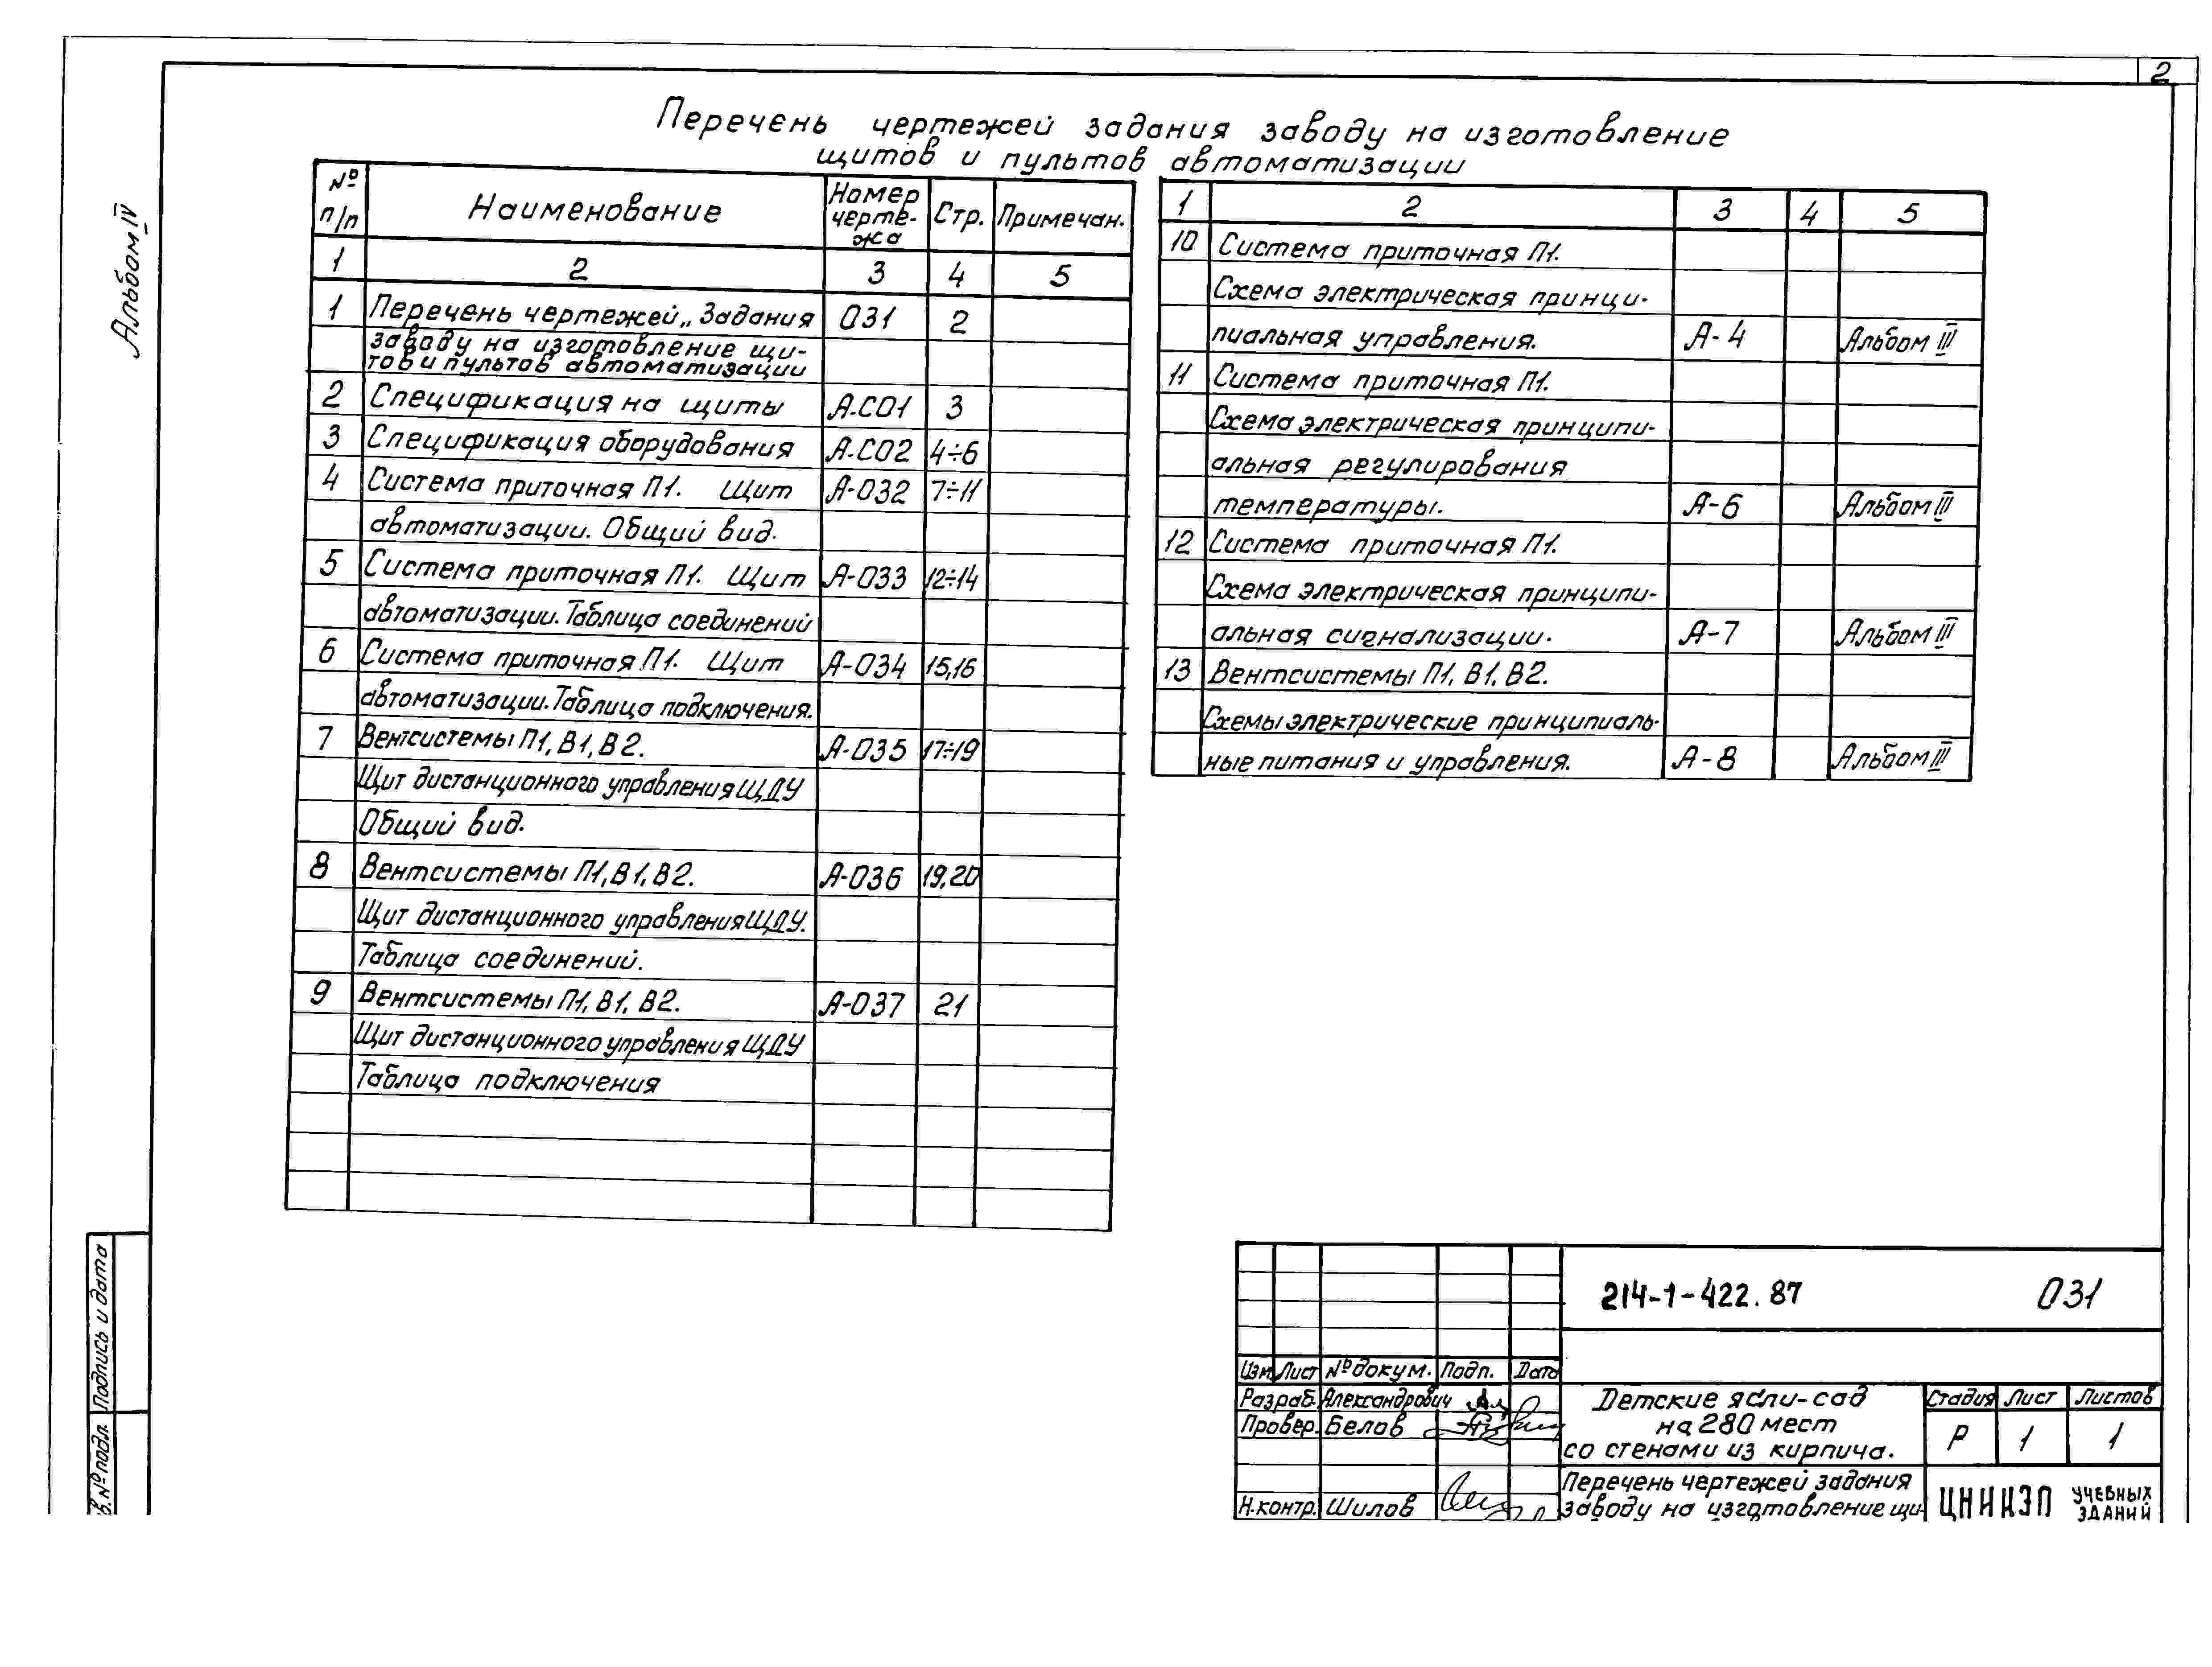 2
Альбом IV
Перечень чертежей задания заводу на изготовление
щитов и пультов автоматизации
№ п/п Наименование Номер черте-жа Стр. Примечан.
1 2 3 4 5
1 Перечень чертежей „Задания 031 2
заводу на изготовление щи-
тов и пультов автоматизации
2 Спецификация на щиты А-С01 3
3 Спецификация оборудования А-С02 4÷6
4 Система приточная П1. Щит А-032 7÷11
автоматизации. Общий вид.
5 Система приточная П1. Щит А-033 12÷14
автоматизации. Таблица соединений
6 Система приточная П1. Щит А-034 15,16
автоматизации. Таблица подключения.
7 Вентсистемы П1, В1, В2. А-035 17÷19
Щит дистанционного управления ЩДУ
Общий вид.
8 Вентсистемы П1, В1, В2. А-036 19,20
Щит дистанционного управления ЩДУ.
Таблица соединений.
9 Вентсистемы П1, В1, В2. А-037 21
Щит дистанционного управления ЩДУ
Таблица подключения
1 2 3 4 5
10 Система приточная П1.
Схема электрическая принци-
пиальная управления. А-4 Альбом III
11 Система приточная П1.
Схема электрическая принципи-
альная регулирования
температуры. А-6 Альбом III
12 Система приточная П1.
Схема электрическая принципи-
альная сигнализации. А-7 Альбом III
13 Вентсистемы П1, В1, В2.
Схемы электрические принципиаль-
ные питания и управления. А-8 Альбом III
Подпись и дата
в. № подл
214-1-422.87 031
Изм Лист № докум. Подп. Дата
Разраб. Александрович
Провер. Белов
Н.контр. Шилов
Детские ясли-сад
на 280 мест
со стенами из кирпича.
Стадия Лист Листов
Р 1 1
Перечень чертежей задания
заводу на изготовление щи-
ЦНИИЭП УЧЕБНЫХ ЗДАНИЙ